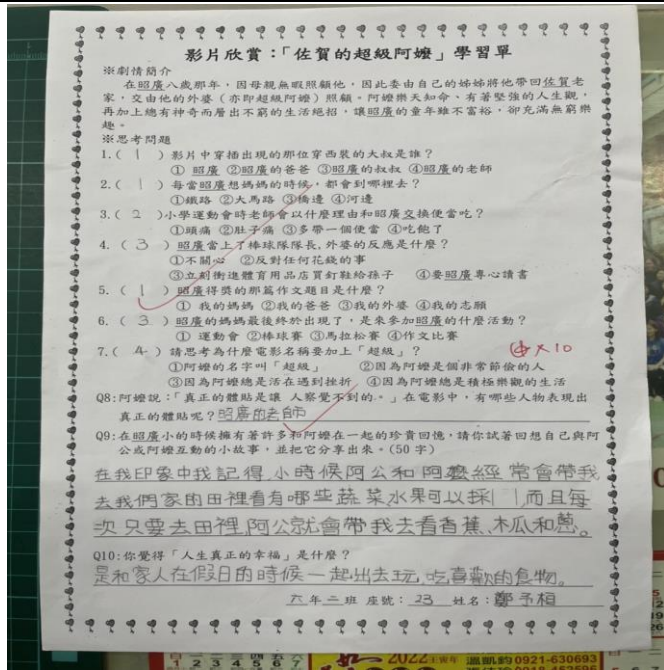 影片欣賞：「佐賀的超級阿嬤」學習單
※劇情簡介
在昭廣八歲那年，因母親無暇照顧他，因此委由自己的姊姊將他帶回佐賀老
家，交由他的外婆（亦即超級阿嬤）照顧。阿嬤樂天知命、有著堅強的人生觀，
再加上總有神奇而層出不窮的生活絕招，讓昭廣的童年雖不富裕，卻充滿無窮樂
趣。
※思考問題
1.( 1 )影片中穿插出現的那位穿西裝的大叔是誰？
①昭廣 ②昭廣的爸爸 ③昭廣的叔叔 ④昭廣的老師
2.( 1 )每當昭廣想媽媽的時候，都會到哪裡去？
①鐵路 ②大馬路 ③橋邊 ④河邊
3.( 2 )小學運動會時老師會以什麼理由和昭廣交換便當吃？
①頭痛 ②肚子痛 ③多帶一個便當 ④吃飽了
4.( 3 )昭廣當上了棒球隊隊長，外婆的反應是什麼？
①不關心 ②反對任何花錢的事
③立刻衝進體育用品店買釘鞋給孫子 ④要昭廣專心讀書
5.( 1 )昭廣得獎的那篇作文題目是什麼？
① 我的媽媽 ②我的爸爸 ③我的外婆 ④我的志願
6.( 3 )昭廣的媽媽最後終於出現了，是來參加昭廣的什麼活動？
① 運動會 ②棒球賽 ③馬拉松賽 ④作文比賽
7.( 4 )請思考為什麼電影名稱要加上「超級」？
①阿嬤的名字叫「超級」 ②因為阿嬤是個非常節儉的人
③因為阿嬤總是活在遇到挫折 ④因為阿嬤總是積極樂觀的生活
Q8:阿嬤說：「真正的體貼是讓 人察覺不到的。」在電影中，有哪些人物表現出
真正的體貼呢？昭廣的老師
Q9:在昭廣小的時候擁有著許多和阿嬤在一起的珍貴回憶，請你試著回想自己與阿
公或阿嬤互動的小故事，並把它分享出來。(50字)
在我印象中我記得，小時候阿公和阿嬤經常會帶我
去我們家的田裡看有哪些蔬菜水果可以採，而且每
次只要去田裡，阿公就會帶我去看香蕉、木瓜和蔥。
Q10:你覺得「人生真正的幸福」是什麼？
是和家人在假日的時候一起出去玩，吃喜歡的食物。
六年二班 座號：23 姓名：鄭予桓
2022
溫凱鈞0921-630693